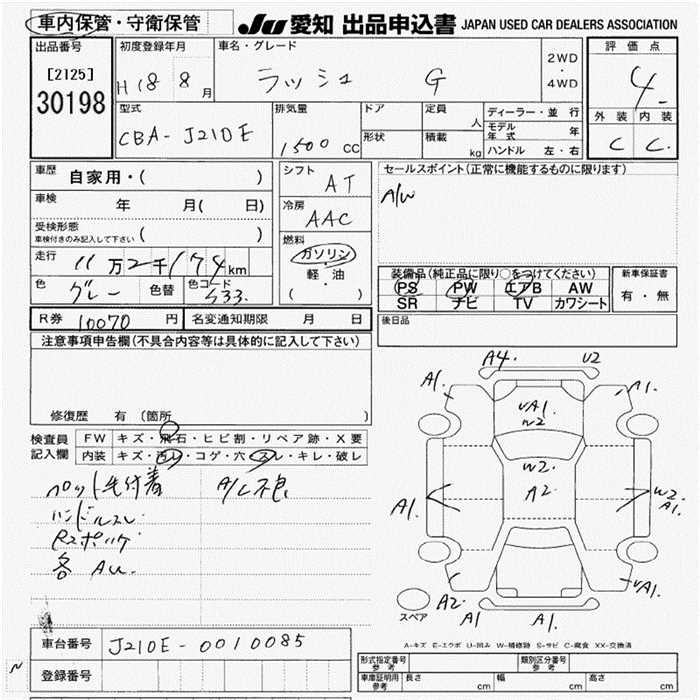 車内保管・守衛保管
JU 愛知 出品申込書 JAPAN USED CAR DEALERS ASSOCIATION
出品番号
[2125]
30198
初度登録年月
H18 8月
車名・グレード
ラッシュ G
2WD
・
4WD
評価点
4
外装 内装
C C
型式
CBA-J210E
排気量
1500 CC
ドア
形状
定員 人
積載 kg
ディーラー・並行
モデル年式 年
ハンドル 左・右
車歴 自家用・( )
車検 年 月( 日)
受検形態
車検付きのみ記入して下さい ( )
走行 11万2千174km
色 グレー 色替 色コード S33
シフト AT
冷房 AAC
燃料
ガソリン
・
軽・油
( )
セールスポイント(正常に機能するものに限ります)
A/W
装備品(純正品に限り○をつけてください)
PS PW エアB AW
SR ナビ TV カワシート
新車保証書
有・無
R券 10070 円 名変通知期限 月 日
後日品
注意事項申告欄(不具合内容等は具体的に記入して下さい)
修復歴 有 (箇所 )
検査員記入欄
FW キズ・飛石・ヒビ割・リペア跡・X要
内装 キズ・汚レ・コゲ・穴・スレ・キレ・破レ
ペット毛付着 A/C不良
ハンドルスレ
各 AU
A4. U2
A1. A1.
UA1.
W2
W2.
A2
A1. W2. A1.
A2. UA1.
A1 A1.
スペア
A-キズ E-エクボ U-凹み W-補修跡 S-サビ C-腐食 XX-交換済
車台番号 J210E-0010085
登録番号
形式指定番号 参考 類別区分番号 参考
車庫証明用 参考 長さ cm 幅 cm 高さ cm